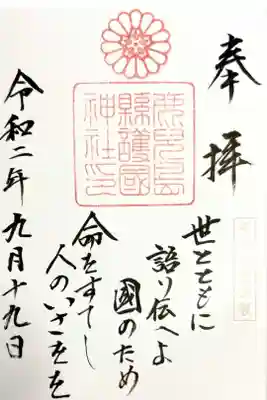 奉拝
鹿兒島
縣護國
神社印
世とともに
語り伝へよ
國のため
命をすてし
人のいさをを
令和二年九月十九日